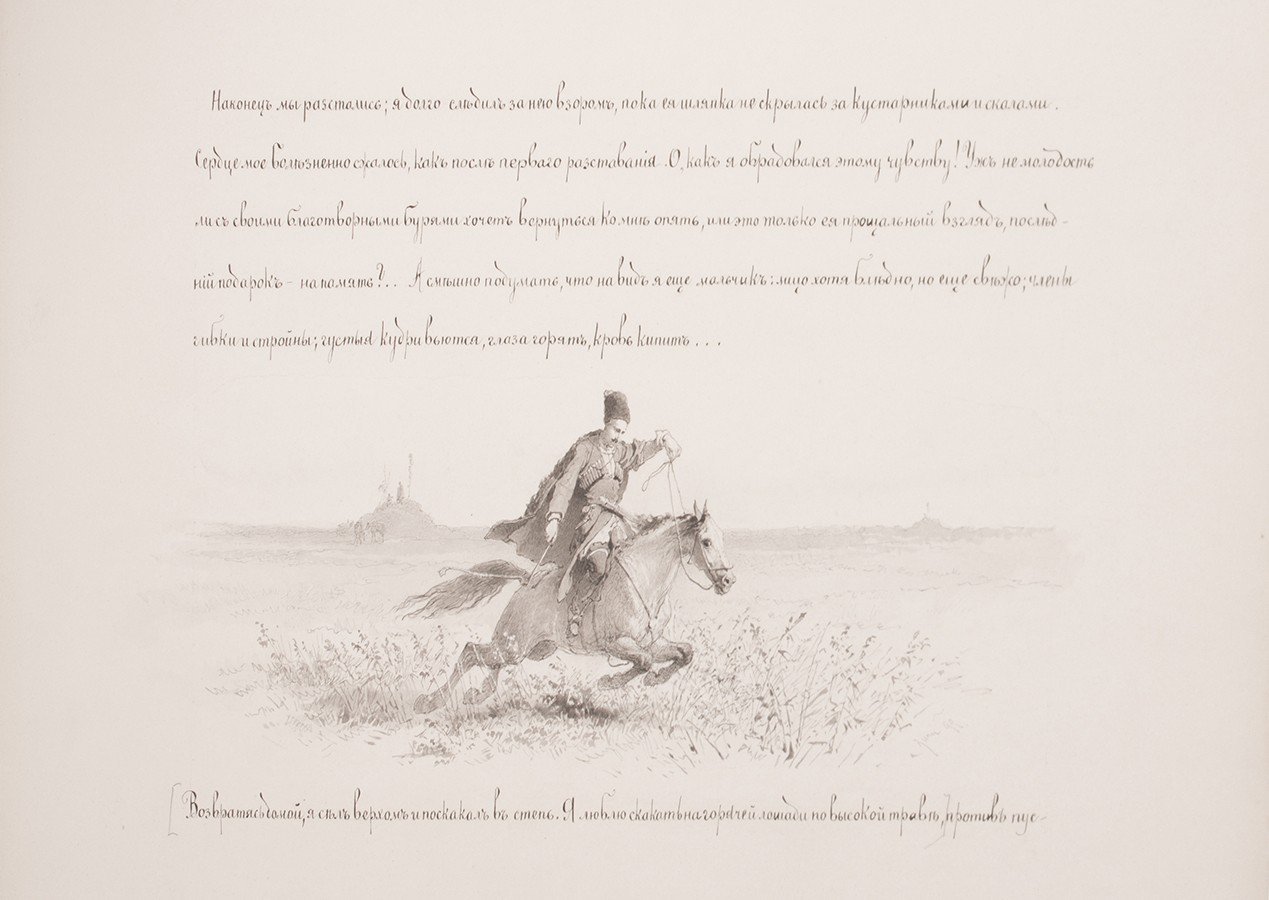 Наконецъ мы разстались; я долго слѣдилъ за нею взоромъ, пока ея шляпка не скрылась за кустарниками и скалами.
Сердце мое болѣзненно сжалось, какъ послѣ перваго разставанія. О, какъ я обрадовался этому чувству! Ужъ не молодость
ли съ своими благотворными бурями хочетъ вернуться ко мнѣ опять, или это только ея прощальный взглядъ, послѣд-
ній подарокъ - на память?.. А смѣшно подумать, что на видъ я еще мальчикъ: лицо хотя блѣдно, но еще свѣжо; члены
гибки и стройны; густыя кудри вьются, глаза горятъ, кровь кипитъ...
[Возвратясь домой, я сѣлъ верхомъ и поскакалъ въ степь. Я люблю скакать на горячей лошади по высокой травѣ,] противъ пус-